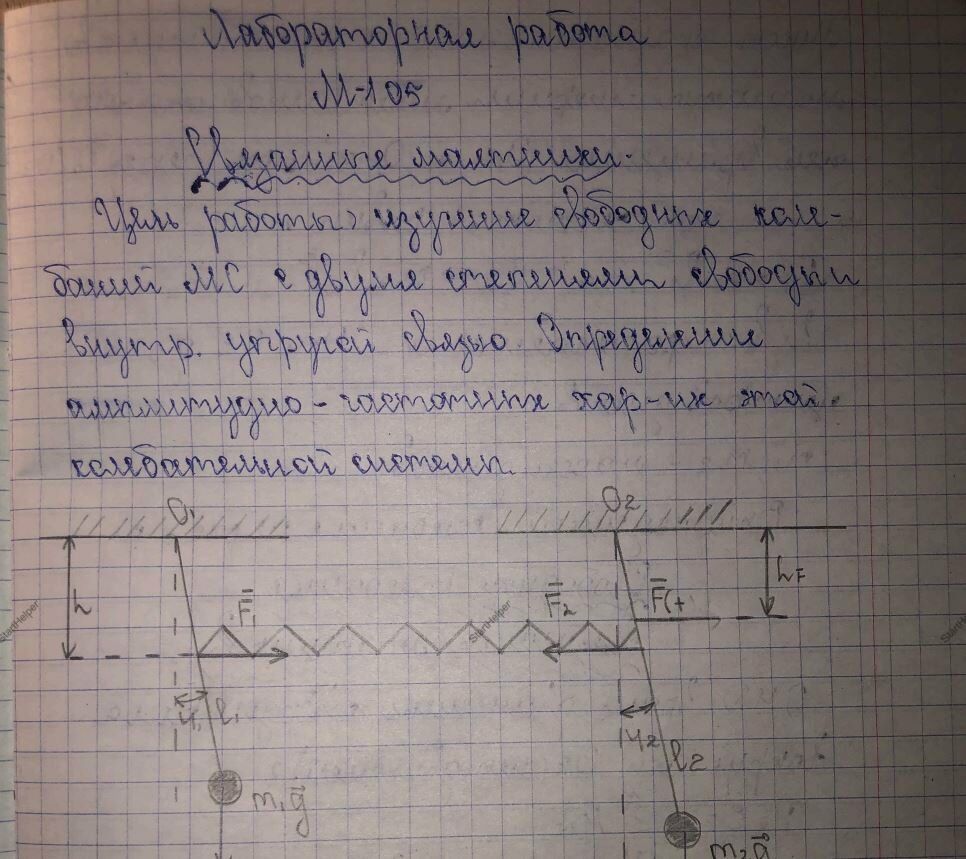 Лабораторная работа
М-105
Связанные маятники.
Цель работы: изучение свободных коле-
баний МС с двумя степенями свободы и
внутр. упругой связью. Определение
амплитудно-частотных хар-ик этой
колебательной системы.
O₁ O₂
h F̄₁ F̄₂ F̄(t h_F
φ₁ l₁ φ₂ l₂
m₁g⃗ m₂g⃗
StartHelper StartHelper StartHelper